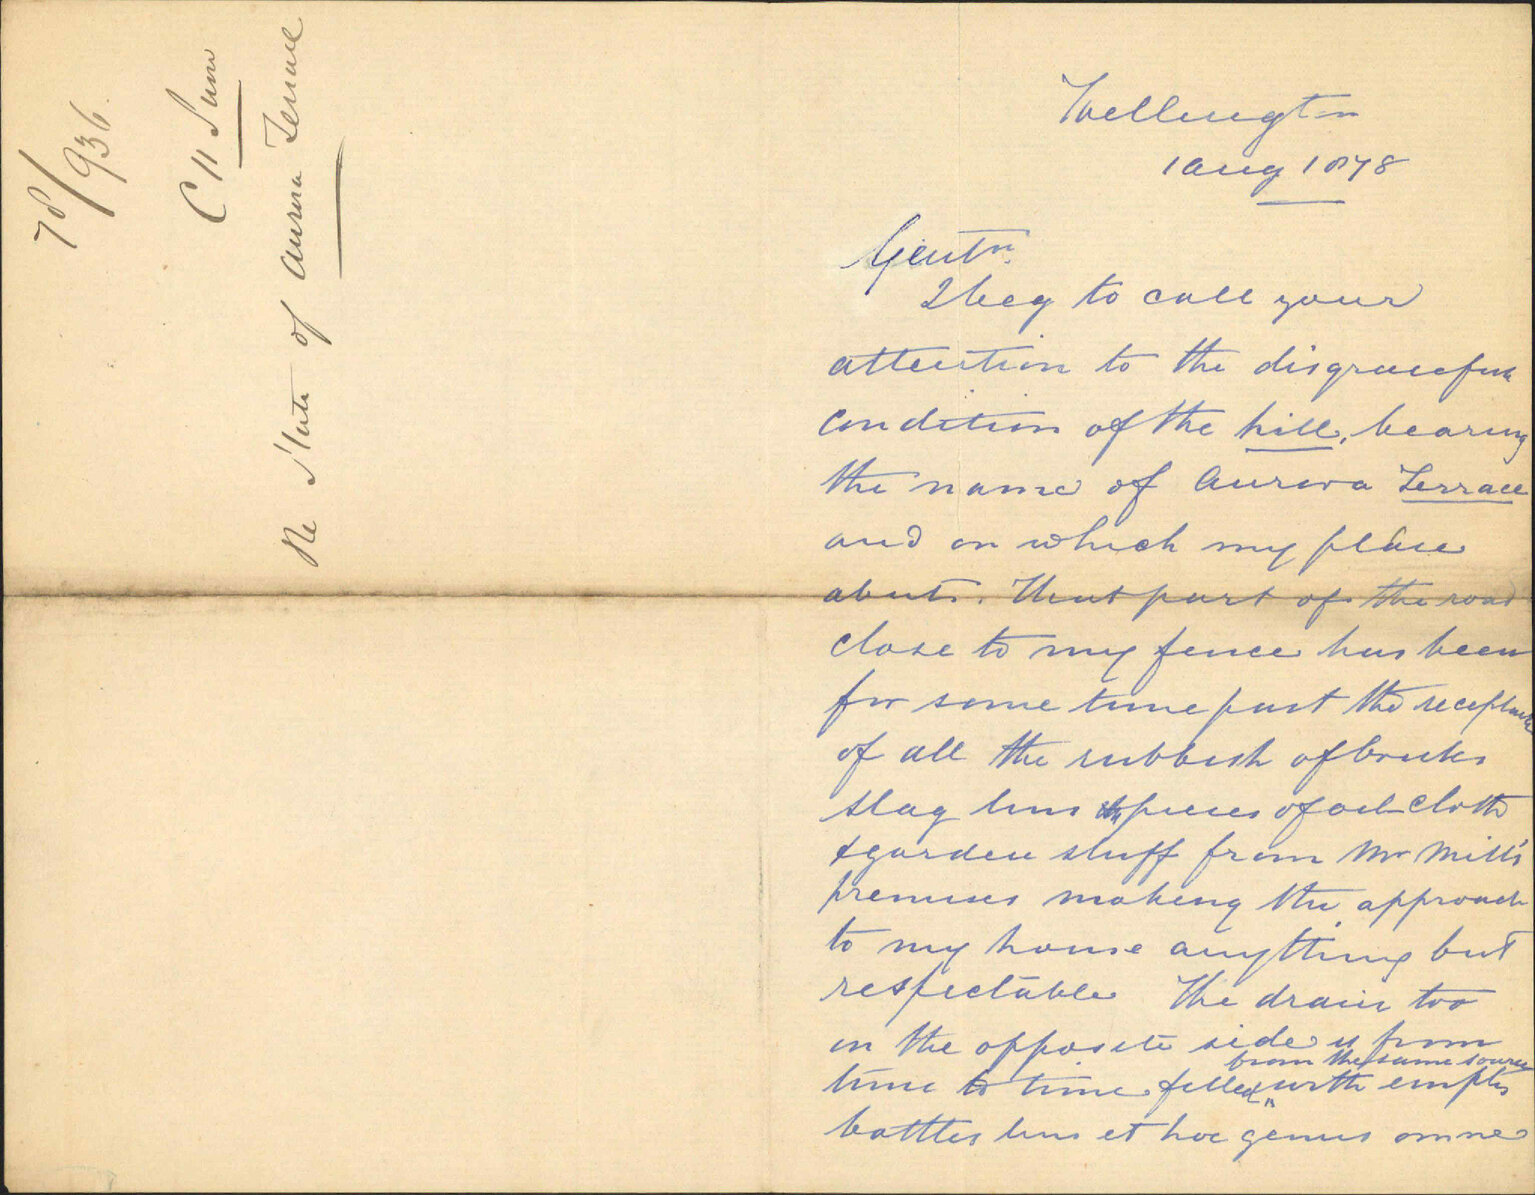 78/936
C H
Re State of Aurora Terrace
Wellington
1 Aug 1878
Gentn.
I beg to call your
attention to the disgraceful
condition of the hill, bearing
the name of Aurora Terrace
and on which my place
abuts. That part of the road
close to my fence has been
for some time past the receptacle
of all the rubbish of bricks
slag tins pieces of oil cloth
& garden stuff from Mr Mill's
premises making the approach
to my house anything but
respectable The drain too
on the opposite side is from
from the same source
time to time filled with empty
bottles tins et hoc genus omne